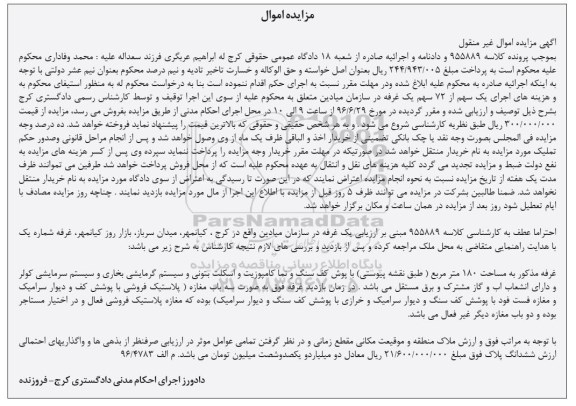 مزایده اموال
آگهی مزایده اموال غیر منقول
بموجب پرونده کلاسه ۹۵۵۸۸۹ و دادنامه و اجرائیه صادره از شعبه ۱۸ دادگاه عمومی حقوقی کرج له ابراهیم عربگری فرزند سعداله علیه : محمد وفاداری محکوم
علیه محکوم است به پرداخت مبلغ ۲۴۴/۹۴۳/۰۰۵ ریال بعنوان اصل خواسته و حق الوکاله و خسارت تاخیر تادیه و نیم درصد محکوم بعنوان نیم عشر دولتی با توجه
به اینکه اجرائیه صادره به محکوم علیه ابلاغ شده ودر مهلت مقرر نسبت به اجرای حکم اقدام ننموده است بنا به درخواست محکوم له به منظور استیفای محکوم به
و هزینه های اجرای یک سهم از ۷۲ سهم یک غرفه در سازمان میادین متعلق به محکوم علیه از سوی این اجرا توقیف و توسط کارشناس رسمی دادگستری کرج
بشرح ذیل توصیف و ارزیابی شده و مقرر گردیده در مورخ ۹۶/۶/۲۹ از ساعت ۹ الی ۱۰ در محل اجرای احکام مدنی از طریق مزایده بفروش می رسد، مزایده از قیمت
۳۰۰/۰۰۰/۰۰۰ ریال طبق نظریه کارشناسی شروع می شود و به هر شخص حقیقی و حقوقی که بالاترین قیمت را پیشنهاد نماید فروخته خواهد شد. ده درصد وجه
مزایده فی المجلس بصورت وجه نقد یا چک بانکی تضمینی از خریدار اخذ و الباقی ظرف یک ماه از وی وصول خواهد شد و پس از انجام مراحل قانونی وصدور حکم
تملیک مورد مزایده به نام خریدار منتقل خواهد شد در صورتیکه در مهلت مقرر خریدار وجه مزایده را پرداخت ننماید سپرده وی پس از کسر هزینه های مزایده به
نفع دولت ضبط و مزایده تجدید می گردد کلیه هزینه های نقل و انتقال به عهده محکوم علیه است که از محل فروش پرداخت خواهد شد طرفین می توانند ظرف
مدت یک هفته از تاریخ مزایده نسبت به نحوه انجام مزایده اعتراض نمایند که در این صورت تا رسیدگی به اعتراض از سوی دادگاه مورد مزایده به نام خریدار منتقل
نخواهد شد. ضمنا طالبین بشرکت در مزایده می توانند ظرف ۵ روز قبل از مزایده با اطلاع این اجرا از مال مورد مزایده بازدید نمایند . چنانچه روز مزایده مصادف با
ایام تعطیل شود روز بعد از مزایده در همان ساعت و مکان برگزار خواهد شد.
ParsNamadData
احتراما عطف به کارشناسی کلاسه ۹۵۵۸۸۹ مبنی بر ارزیابی یک غرفه در سازمان میادین واقع در کرج ، کیانمهر، میدان سرباز، بازار روز کیانمهر، غرفه شماره یک
با هدایت راهنمایی متقاضی به محل ملک مراجعه کرده و پس از بازدید و بررسی های لازم نتیجه کارشناس به شرح زیر می باشد:
پایگاه اطلاع رسانی مناقصه و مزایده
غرفه مذکور به مساحت ۱۸۰ متر مربع ( طبق نقشه پیوستی) با پوش کف سنگ و نما کامپوزیت و اسکلت بتونی و سیستم گرمایشی بخاری و سیستم سرمایشی کولر
و دارای انشعاب آب و گاز مشترک و برق مستقل می باشد . در زمان بازدید غرفه فوق به صورت سه باب مغازه ( پلاستیک فروشی با پوشش کف و دیوار سرامیک
و مغازه فست فود با پوشش کف سنگ و دیوار سرامیک و خرازی با پوشش کف سنگ و دیوار سرامیک) بوده که مغازه پلاستیک فروشی فعال و در اختیار مستاجر
بوده و دو باب مغازه دیگر غیر فعال می باشد.
با توجه به مراتب فوق و ارزش ملاک منطقه و موقعیت مکانی مقطع زمانی و در نظر گرفتن تمامی عوامل موثر در ارزیابی صرفنظر از بدهی ها و واگذاریهای احتمالی
ارزش ششدانگ پلاک فوق مبلغ ۲۱/۶۰۰/۰۰۰/۰۰۰ ریال معادل دو میلیاردو یکصدوشصت میلیون تومان می باشد. م الف ۹۶/۴۷۸۳
دادورز اجرای احکام مدنی دادگستری کرج- فروزنده